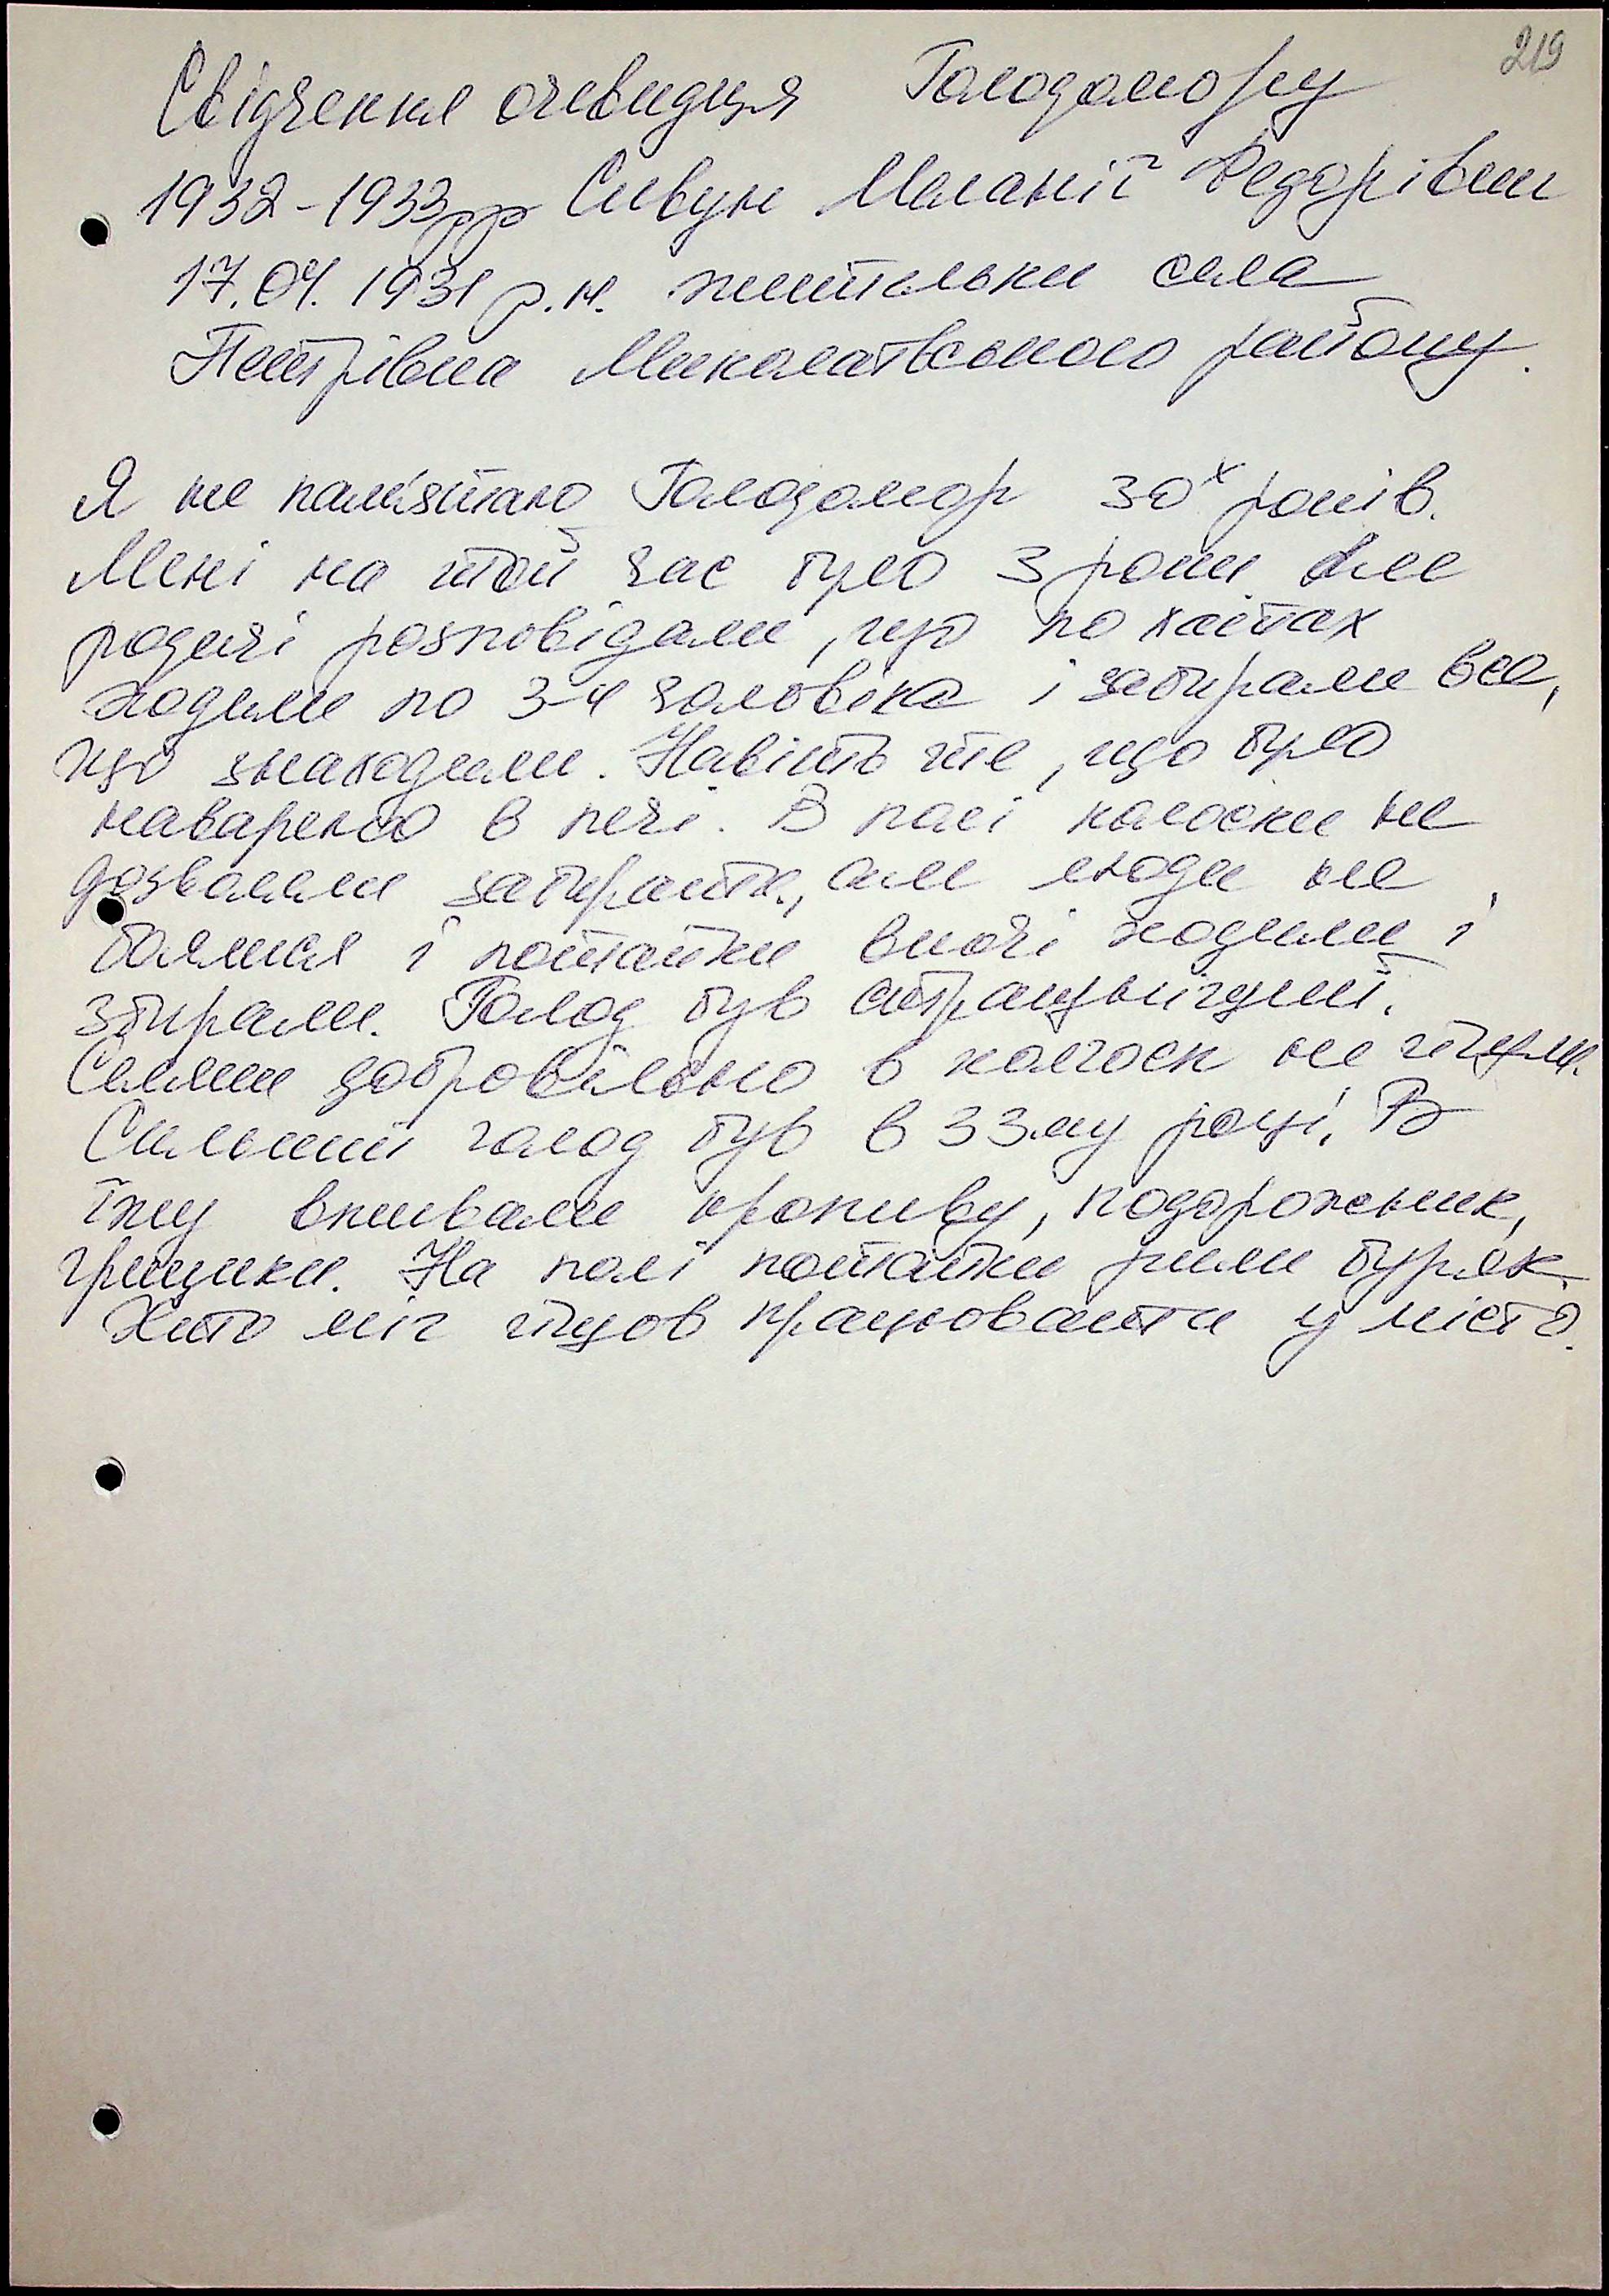 219
Свідчення очевидця Голодомору
1932-1933рр Сивун Меланії Федорівни
17.04.1931 р.н. жительки села
Петрівка Миколаївського району.
Я не пам'ятаю Голодомор 30х років.
Мені на той час було 3 роки Але
родичі розповідали, що по хатах
ходили по 3-4 чоловіка і забирали все,
що знаходили. Навіть те, що було
наварено в печі. В полі колоски не
дозволяли забирати, але люди не
боялися і потайки вночі ходили і
збирали. Голод був страшніший.
Селяни добровільно в колгосп не йшли.
Сильний голод був в 33му році. В
їжу вживали кропиву, подорожник,
грицики. На полі потайки рили буряк.
Хто міг йшов працювати у місто.